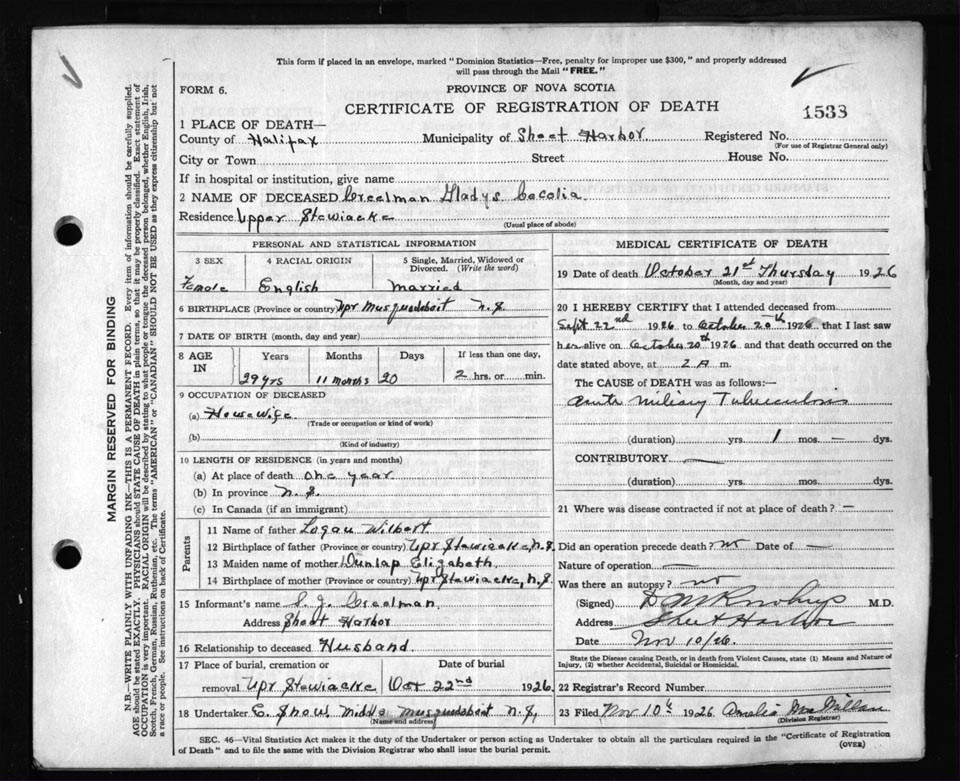 This form if placed in an envelope, marked "Dominion Statistics—Free, penalty for improper use $300," and properly addressed
will pass through the Mail "FREE."
FORM 6.
PROVINCE OF NOVA SCOTIA
CERTIFICATE OF REGISTRATION OF DEATH
1533
1 PLACE OF DEATH—
County of Halifax Municipality of Sheet Harbor Registered No.
(For use of Registrar General only)
City or Town Street House No.
If in hospital or institution, give name
2 NAME OF DECEASED Creelman Gladys Cecolia
Residence Upper Stewiacke
(Usual place of abode)
PERSONAL AND STATISTICAL INFORMATION
3 SEX 4 RACIAL ORIGIN 5 Single, Married, Widowed or
Divorced. (Write the word)
Female English Married
6 BIRTHPLACE (Province or country) Upr Musquodoboit N.S.
7 DATE OF BIRTH (month, day and year)
8 AGE IN Years Months Days If less than one day,
29 yrs 11 months 20 2 hrs. or min.
9 OCCUPATION OF DECEASED
(a) Housewife
(Trade or occupation or kind of work)
(b)
(Kind of industry)
10 LENGTH OF RESIDENCE (in years and months)
(a) At place of death one year
(b) In province N.S.
(c) In Canada (if an immigrant)
Parents
11 Name of father Logan Wilbert
12 Birthplace of father (Province or country) Upr Stewiacke, N.S.
13 Maiden name of mother Dunlap Elizabeth
14 Birthplace of mother (Province or country) Upr Stewiacke, N.S.
15 Informant's name S. J. Creelman
Address Sheet Harbor
16 Relationship to deceased Husband
17 Place of burial, cremation or Date of burial
removal Upr Stewiacke Oct 22nd 1926
18 Undertaker E. Show, Middle Musquodoboit N.S,
(Name and address)
MEDICAL CERTIFICATE OF DEATH
19 Date of death October 21st Thursday 1926
(Month, day and year)
20 I HEREBY CERTIFY that I attended deceased from
Sept 22nd 1926 to October 20th 1926 that I last saw
her alive on October 20th 1926 and that death occurred on the
date stated above, at 2 A m.
The CAUSE of DEATH was as follows:—
Acute Miliary Tuberculosis
(duration) yrs. 1 mos. — dys.
CONTRIBUTORY —
(duration) yrs. mos. dys.
21 Where was disease contracted if not at place of death? —
Did an operation precede death? no Date of —
Nature of operation —
Was there an autopsy? no
(Signed) M.D.
Address Sheet Harbor
Date Nov 10/26.
State the Disease causing Death, or in death from Violent Causes, state (1) Means and Nature of
Injury, (2) whether Accidental, Suicidal or Homicidal.
22 Registrar's Record Number
23 Filed Nov 10th 1926 Amelia MacMillan
(Division Registrar)
SEC. 46—Vital Statistics Act makes it the duty of the Undertaker or person acting as Undertaker to obtain all the particulars required in the "Certificate of Registration
of Death" and to file the same with the Division Registrar who shall issue the burial permit. (OVER)
MARGIN RESERVED FOR BINDING
N.B.—WRITE PLAINLY WITH UNFADING INK—THIS IS A PERMANENT RECORD. Every item of information should be carefully supplied.
AGE should be stated EXACTLY. PHYSICIANS should STATE CAUSE OF DEATH in plain terms, so that it may be properly classified. Exact statement of
OCCUPATION is very important. RACIAL ORIGIN will be described by stating to what people or race the deceased person belonged, whether English, Irish,
Scotch, French, German, Russian, Ruthenian, etc. The terms "AMERICAN" or "CANADIAN" SHOULD NOT BE USED as they express citizenship but not
a race or people. See instructions on back of Certificate.